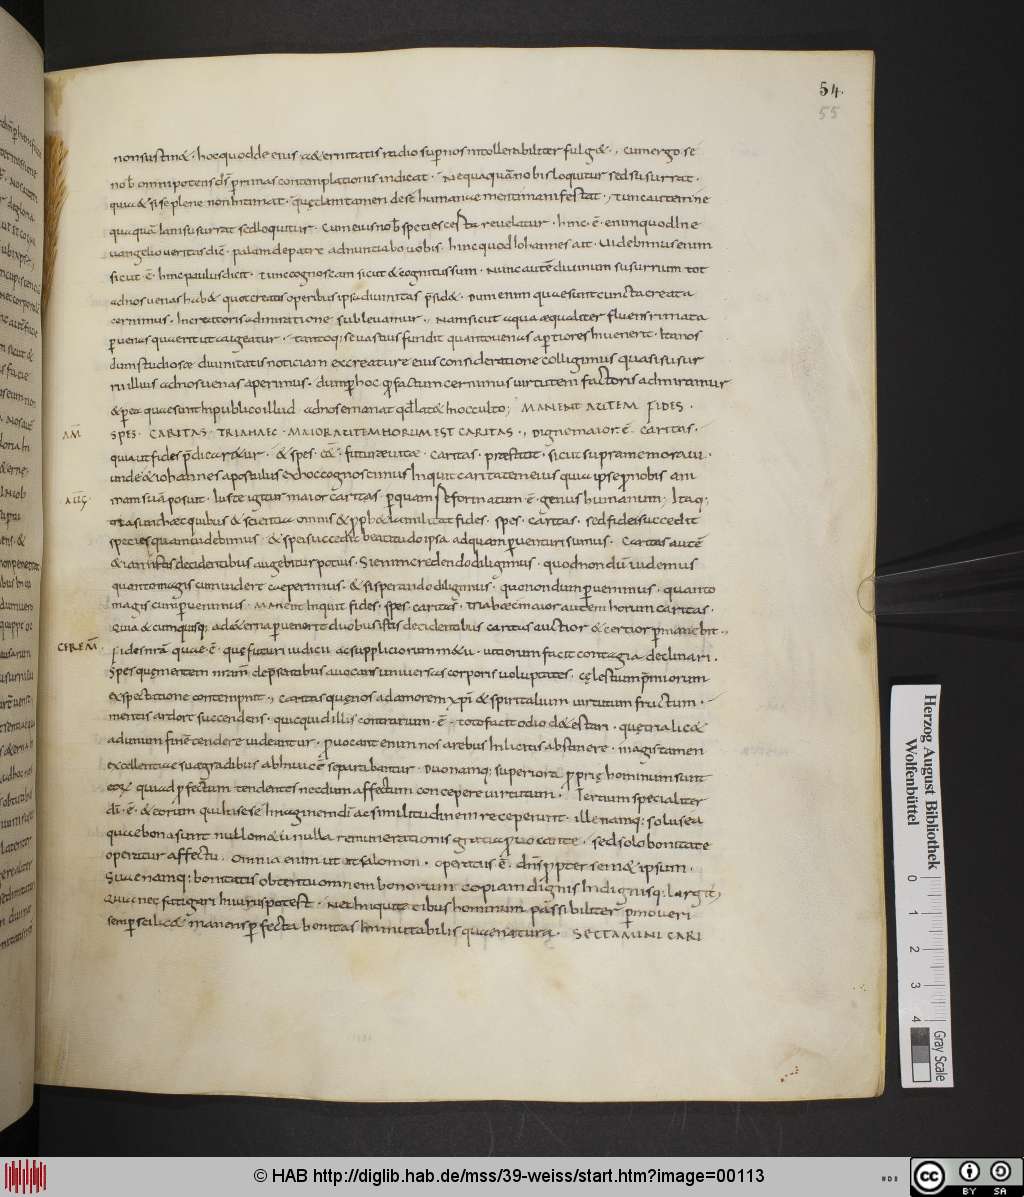 54.
55
non sustin& · hoc quodde eius &ernitatis radio sup nos intollerabiliter fulg& ., cum ergo se
nob omnipotens ds p rimas contemplationis indicat · Nequaquā nobis loquitur sed susurrat .
quia & si se plene non intimat · quędam tamen de se humanae menti manifestat ., Tunc autem ne
quaquā iam susurrat sed loquitur · cum eius nob species certa revelatur · hinc · ē · enim quod in e
uangelio veritas dic · palam de patre adnuntiabo uobis · hinc quod Iohannes ait · videbimus eum
sicut · ē · hinc paulus dicit · Tunc cognoscam sicut & cognitus sum · Nunc autē diuinum susurrum tot
ad nos uenas hab& quot creatis operibus ipsa diuinitas p sid& · Dum enim quae sunt cuncta creata
cernimus · In creatoris admiratione subleuamur ., Nam sicut aqua aequaliter fluens rimata
p uenas quaeritur ut augeatur · tanto q; se uastius fundit quanto uenas ap tiores inuenerit · Ita nos
dum studiosae diuinitatis noticiam ex creature eius consideratione colligimus quasi susur
rii illius ad nos uenas aperimus · dum p hoc q factum cernimus uirtutem factoris admiramur
& p ea quae sunt in publico illud ad nos emanat qd lat& in occulto ; MANENT AUTEM FIDES ·
AM
SPES · CARITAS · TRIA HAEC · MAIOR AUTEM HORUM EST CARITAS ., Digne maior · ē · caritas ·
quia ut fides p dicar&ur · & spes ad futurae uitae · caritas · praestitit · sicut supra memoraui ·
unde & iohannes apostulus ex hoc cognoscimus Inquit caritatem eius quia ipse p nobis ani
AUG
mam suā posuit · Iuste igitur maior caritas · p quam reformatum ē · genus humanum ; Itaq;
tria sunt haec quibus & scientia omnis & pph&ia militat fides · spes · caritas · sed fidei succedit
species quam uidebimus · & spei succedit beatitudo ipsa ad quam p uenturi sumus · Caritas autē
& iam istis decidentibus augebitur potius · Si enim credendo diligimus · quod non dū uidemus
quanto magis cum uidere caeperimus · & si sperando diligimus · quo nondum p uenimus · quanto
magis cum p uenimus · MANENT Inquit fides · spes · caritas · tria haec maior autem horum caritas ·
Quia & cum quisq; ad &erna p uenerit duobus istis decidentibus caritas auctior & certior p manebit .,
CEREM
fides nrā quae · ē · quę futuri iudicii ac suppliciorum m&u · uitiorum facit contagia declinari .
Spes quę mentem nrām de p sentibus auocans uniuersas corporis uoluptates · cęlestium p miorum
expectatione contempnit ., caritas quę nos ad amorem xpī & spiritalium uirtutum fructum ·
mentis ardore succendens · quicquid illis contrarium · ē · toto facit odio d&estari · quę tria lic&
ad unum finē tendere uideantur · p uocant enim nos a rebus inlicitis abstinere · magis tamen
excellentiae suae gradibus ab inuicē separabantur · Duo namq; superiora p prię hominum sunt
eor qui ad p fectum tendentes necdum affectum concepere uirtutum · Tertium specialiter
dī · ē · & eorum qui in se se Imaginem dī ac similitudinem receperunt · ille namq; solus ea
quae bona sunt nullo m&u nulla remunerationis gratia p uocante · sed sola bonitate
operatur affectu · Omnia enim ut ait salomon · operatus ē · dns ppter semet ipsum ·
Suae namq; bonitatis obtentu omnem bonorum copiam dignis Indignisq; Largit
Quia nec fatigari Iniuriis potest · Nec Iniquitatibus hominum passibiliter p moueri
semp scilic& manens p fecta bonitas Inmutabilis quae natura · SECTAMINI CARI
Herzog August Bibliothek
Wolfenbüttel
0 1 2 3 4
Gray Scale
© HAB http://diglib.hab.de/mss/39-weiss/start.htm?image=00113
cc BY SA